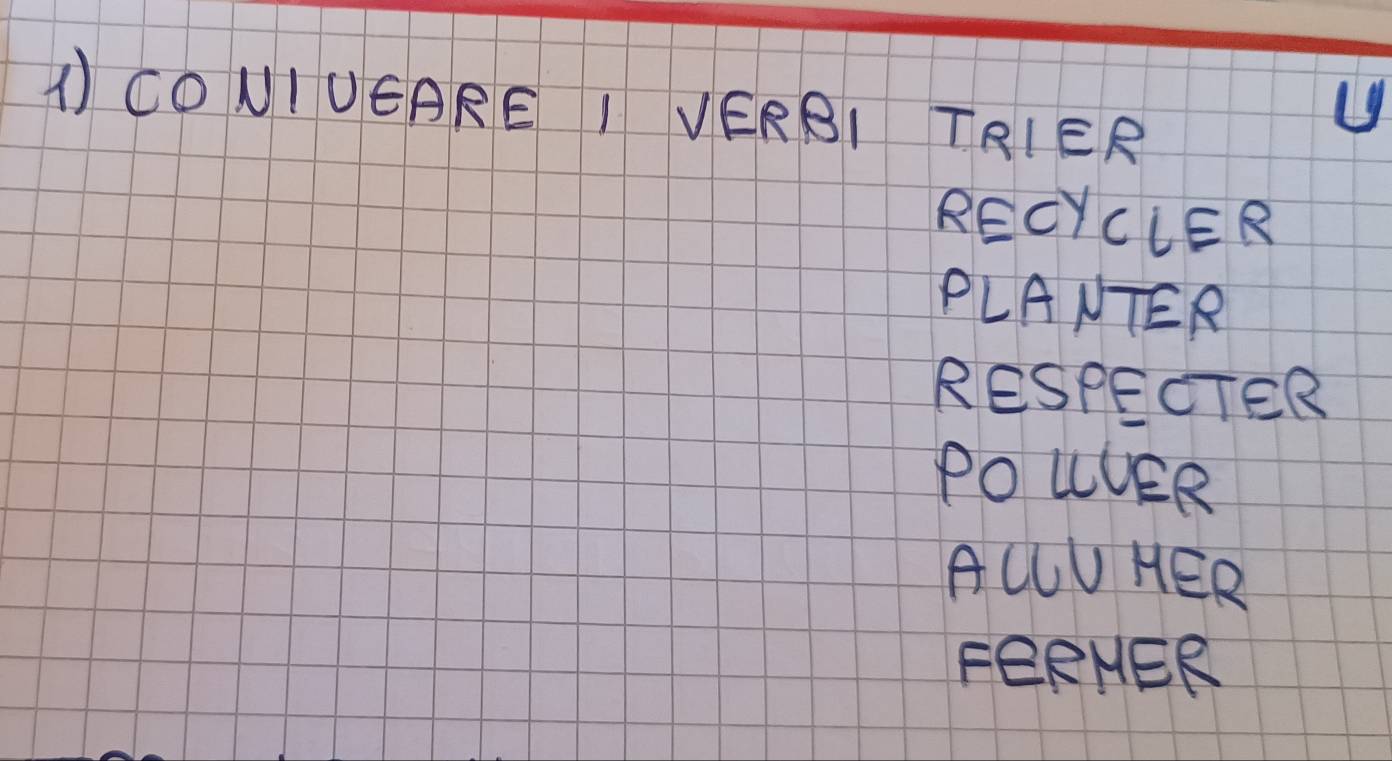 1) CONIUGARE I VERBI TRIER
RECYCLER
PLANTER
RESPECTER
POLLUER
ALLUMER
FERMER